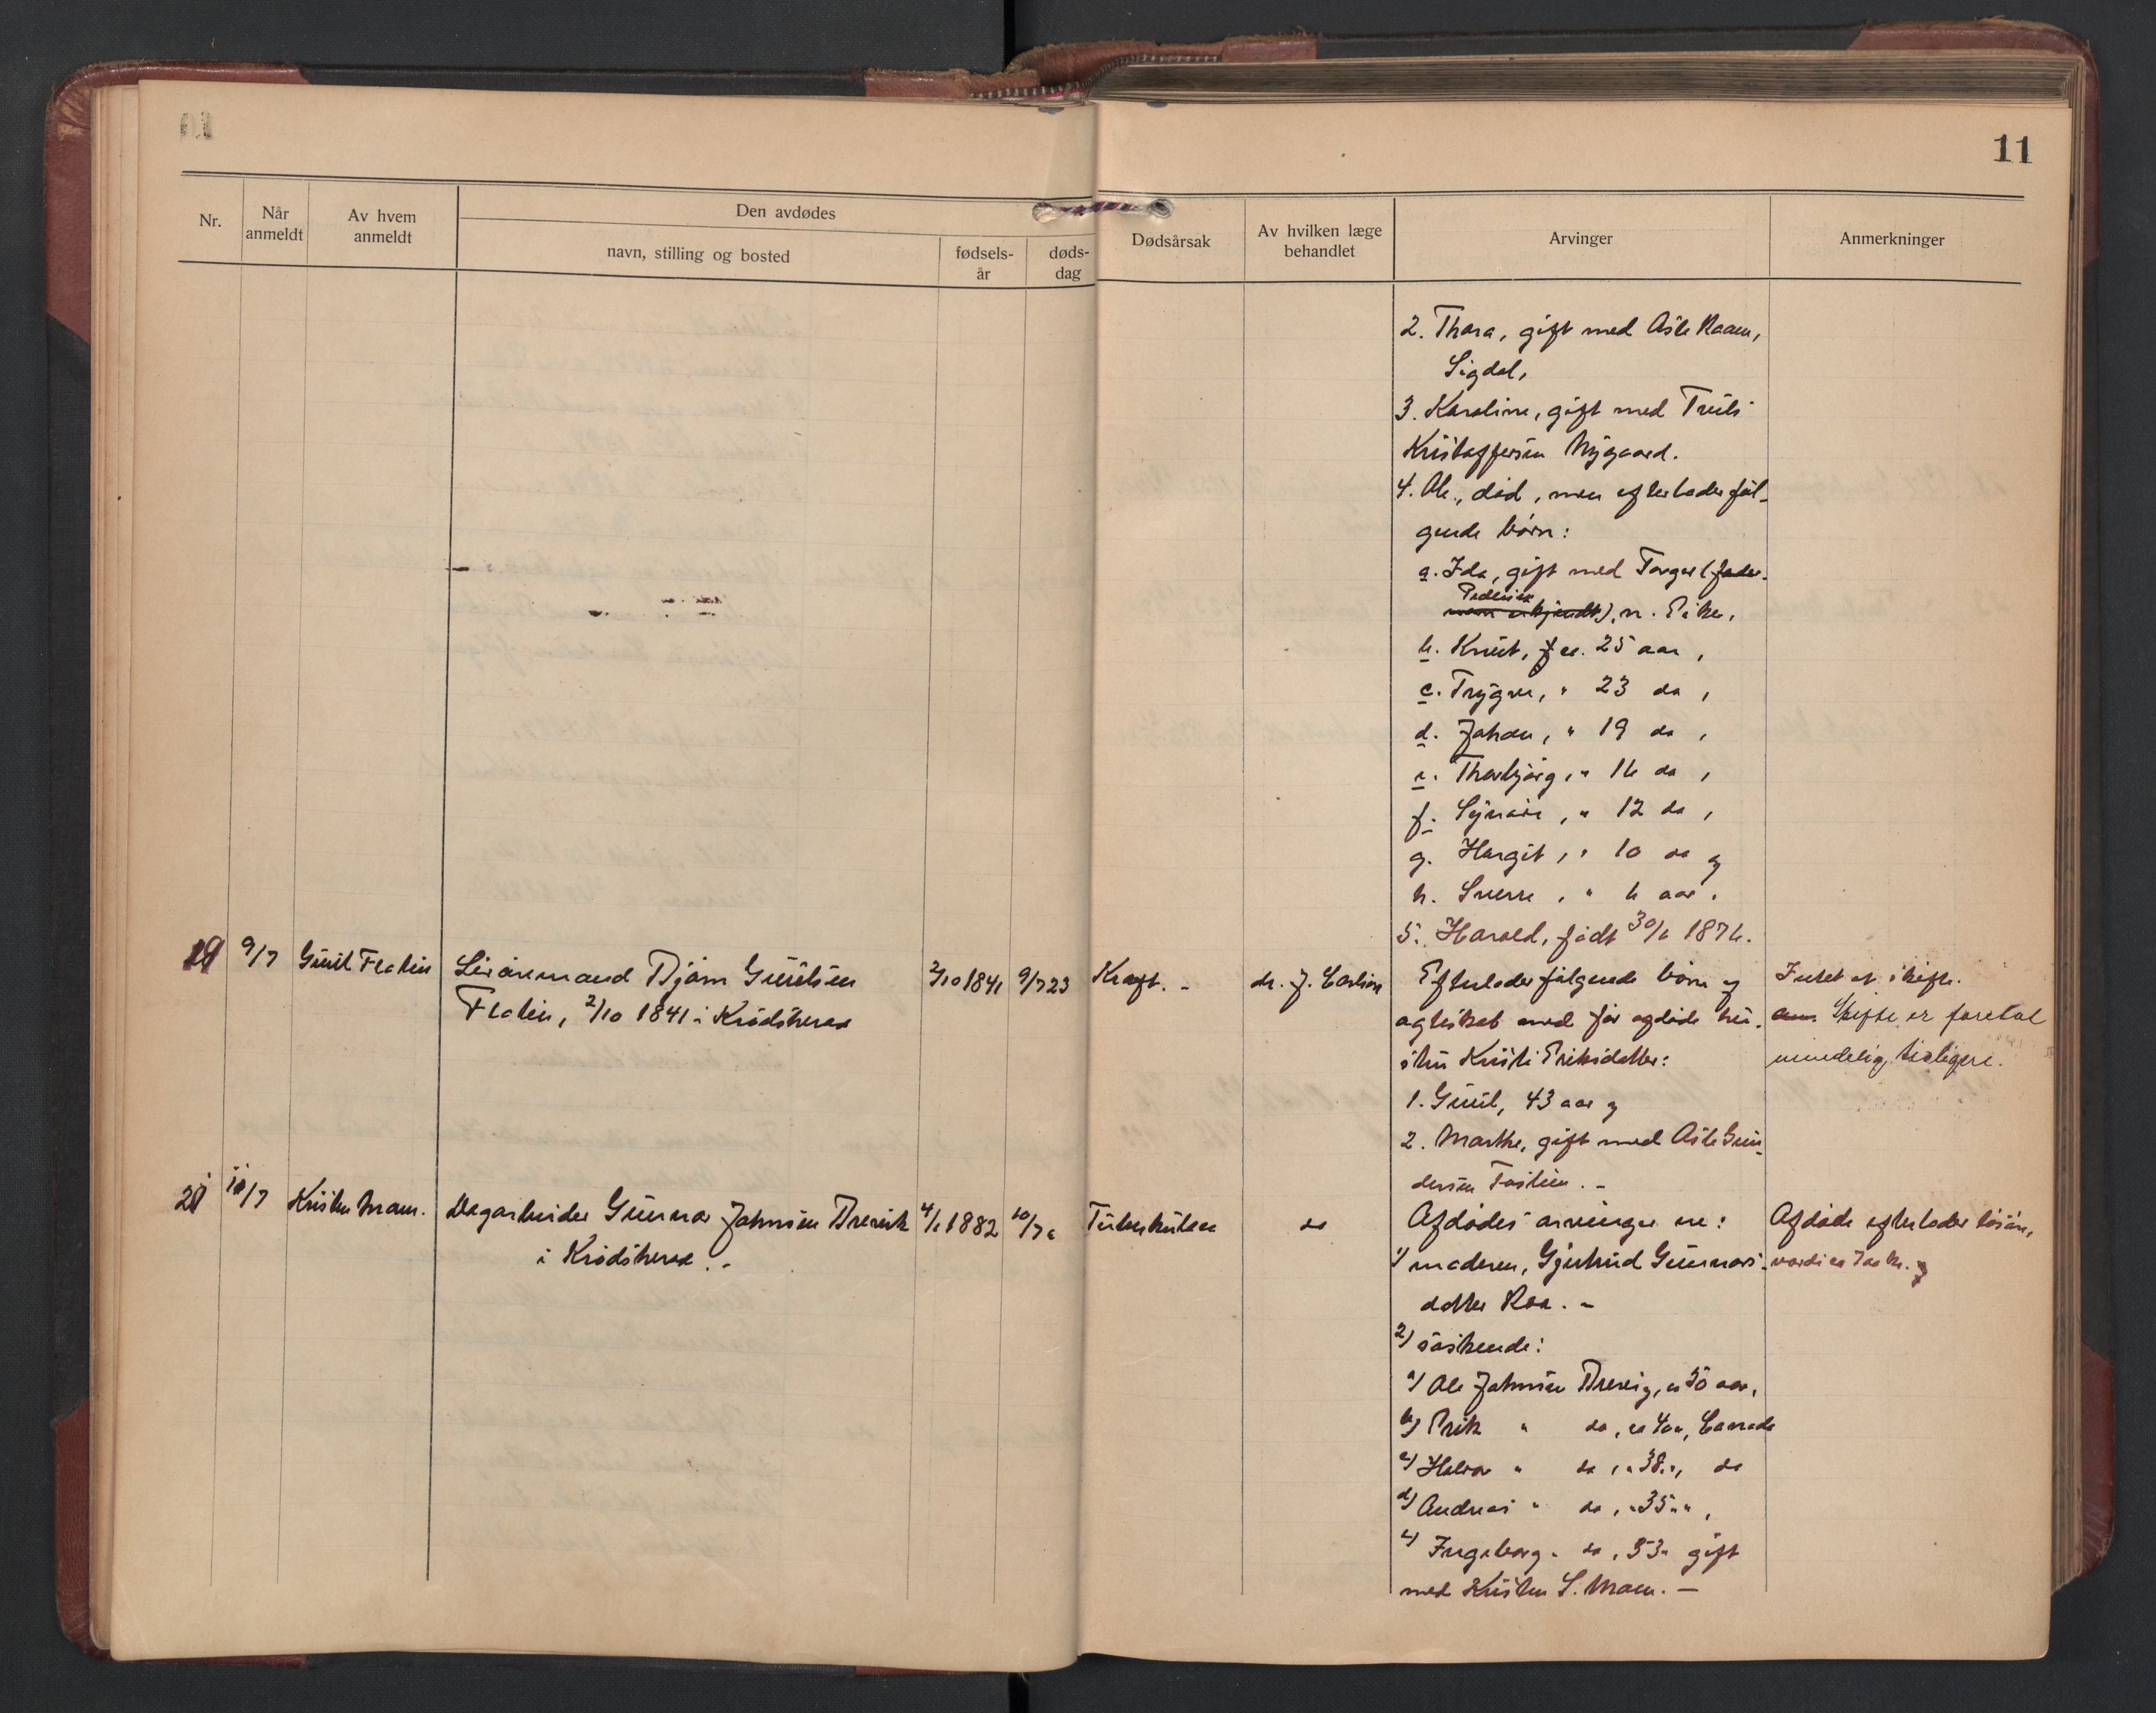 11
Nr.
Når
anmeldt
Av hvem
anmeldt
Den avdødes
navn, stilling og bosted
fødsels-
år
døds-
dag
Dødsårsak
Av hvilken læge
behandlet
Arvinger
Anmerkninger
2. Thora, gift med Asle Raaen,
Sigdal,
3. Karoline, gift med Truls
Kristoffersen Nygaard.
4. Ole, død, men efterlader føl-
gende børn:
a. Ida, gift med Torger (fader-
Pedersen
navn ukjendt), n. Eiker,
b. Knut, f ca. 25 aar,
c. Trygve, " 23 do,
d. Johan, " 19 do,
e. Thorbjørg, " 16 do,
f. Synøve, " 12 do,
g. Hargit, " 10 do og
h. Sverre, " 6 aar.
5. Harald, født 30/6 1876.
19
9/7
Guul Flatin
Livøremand Bjørn Guulsen
Flatin, 2/10 1841 i Krødsherad
2/10 1841
9/7 23
Kræft. -
dr. J. Carlson
Efterlader følgende børn og
egteskab med før afdøde hu-
stru Kristi Eriksdatter:
1. Guul, 43 aar og
2. Marthe, gift med Asle Gun-
dersen Foslien. -
Intet at skifte.
Skifte er foretat
mindelig tidligere.
20
10/7
Kristen Moen.
Dagarbeider Gunnar Johnsen Brevik
i Krødsherad. -
4/1 1882
10/7 c
Tuberkulose
do
Afdødes arvinger er:
1) moderen, Gjertrud Gunnars-
datter Roa. -
2) søskende:
a) Ole Johnsen Brevig, c 50 aar,
b) Erik " do, ca 40 ", Canada
c) Halvor " do, " 38 ", do
d) Andreas " do, " 35 " ",
e) Ingeborg " do, 53 " gift
med Kristen S. Moen. -
Afdøde efterlader løsøre,
værdi ca 700 kr. og